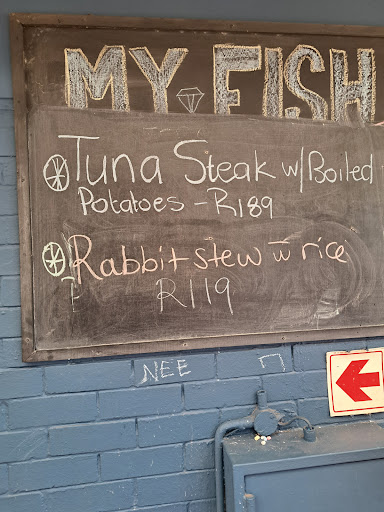 MY FISH
Tuna Steak w/ Boiled
Potatoes - R189
Rabbit stew w rice
R119
NEE